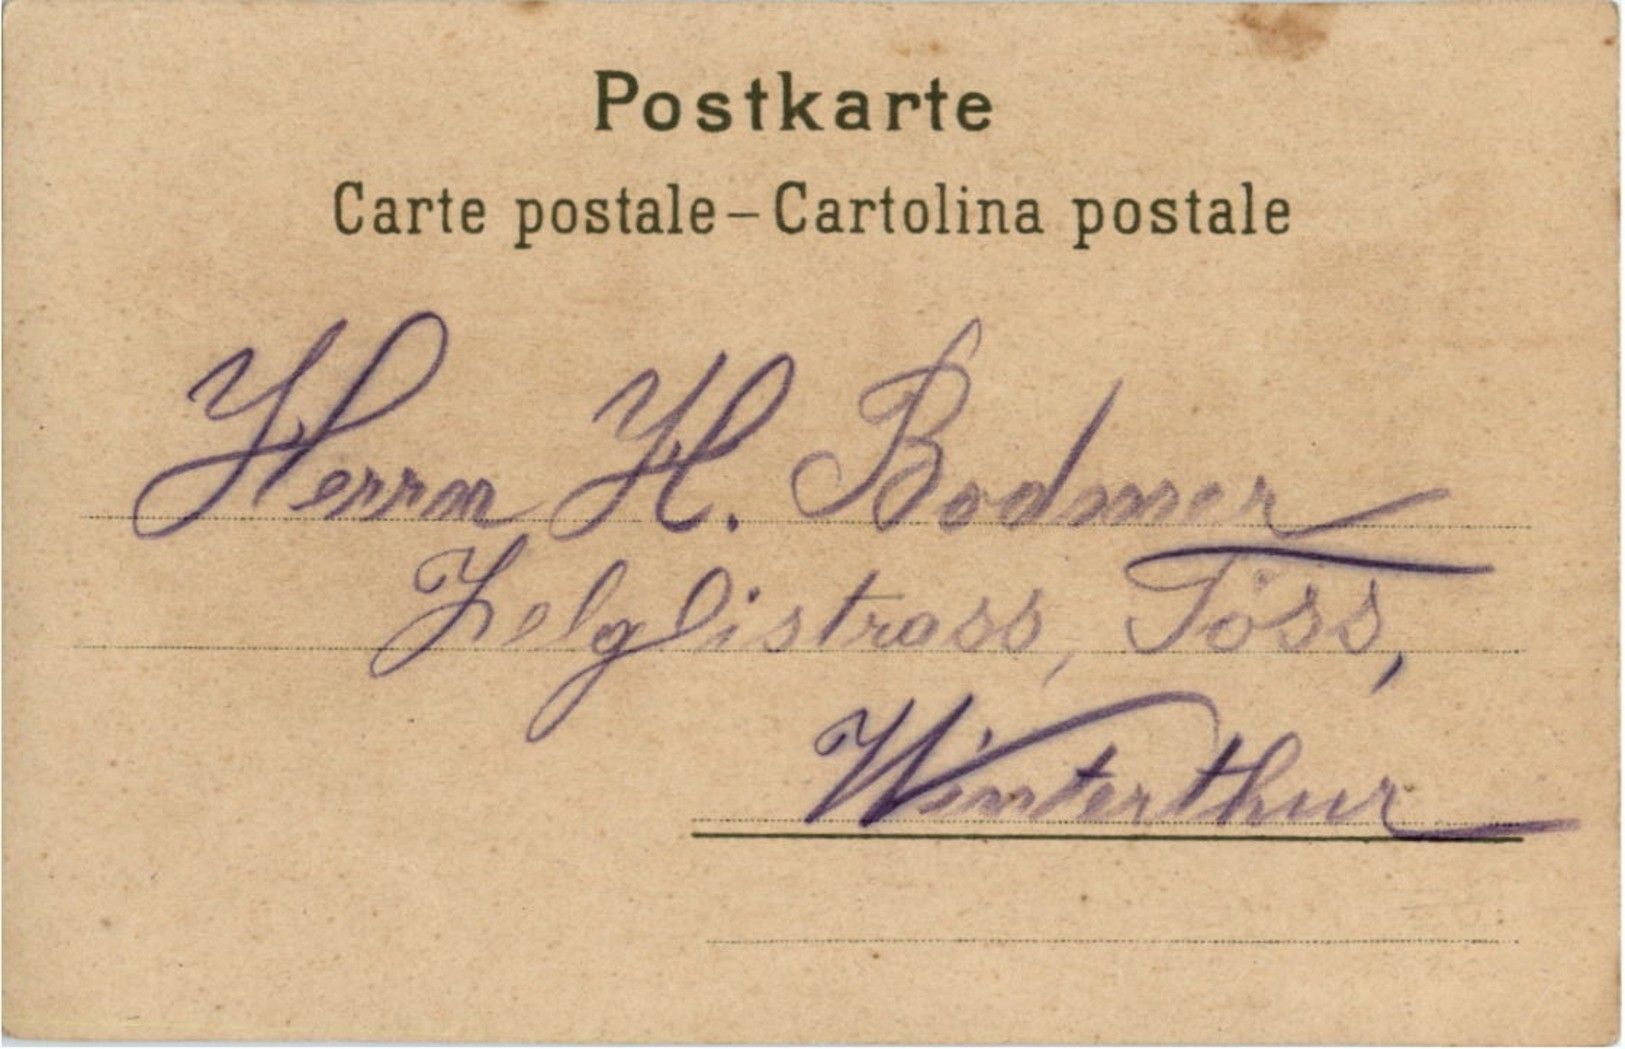 Postkarte
Carte postale – Cartolina postale
Herrn H. Bodmer
Zelglistrass, Töss,
Winterthur